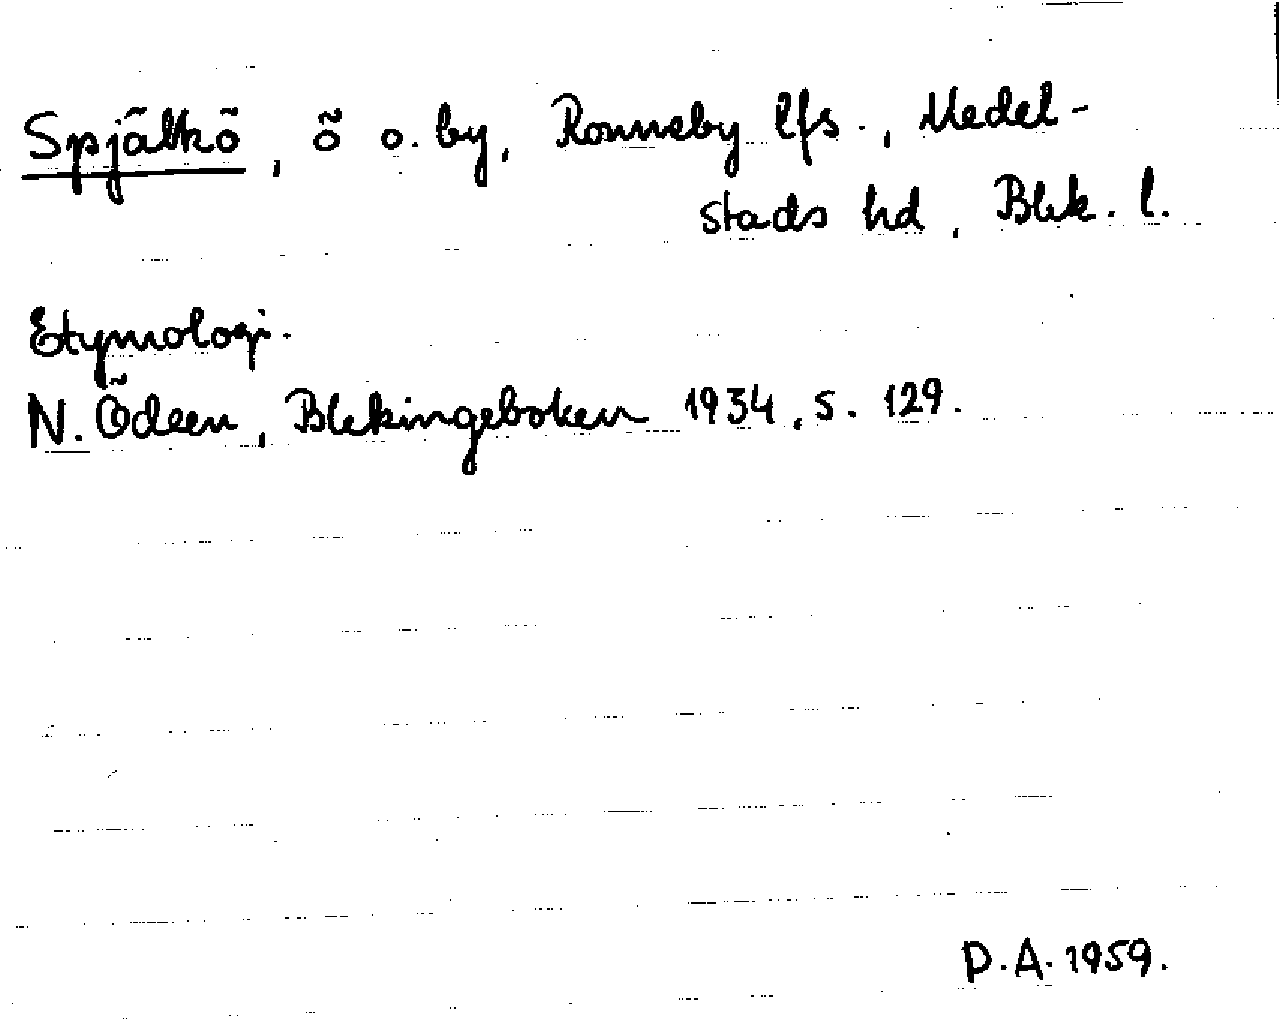 Spjälkö, ö o. by, Ronneby lfs., Medel-
stads hd, Blek. l.
Etymologi.
N. Ödeen, Blekingeboken 1934, s. 129.
D.A. 1959.